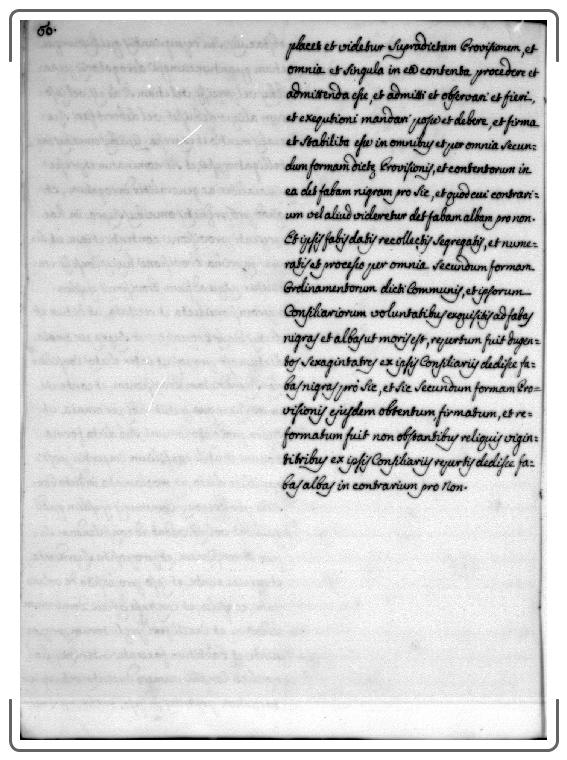 66.
placet et videtur supradictam Provisionem, et
omnia et singula in ea contenta procedere et
admittenda esse, et admitti et observari et fieri,
et exequtioni mandari posse et debere, et firma
et stabilita esse in omnibus et per omnia secun=
dum formam dictę Provisionis, et contentorum in
ea det fabam nigram pro sic, et quod cui contrari=
um vel aliud videretur det fabam albam pro non.
Et ipsis fabis datis recollectis segregatis, et nume=
ratis et processo per omnia secundum formam
Ordinamentorum dicti Communis, et ipsorum
Consiliariorum voluntatibus exquisitis ad fabas
nigras et albas ut moris est, repertum fuit dugen=
tos sexaginta tres ex ipsis Consiliariis dedisse fa=
bas nigras pro sic, et sic secundum formam Pro=
visionis ejusdem obtentum firmatum, et re=
formatum fuit non obstantibus reliquis vigin=
titribus ex ipsis Consiliariis repertis dedisse fa=
bas albas in contrarium pro non.